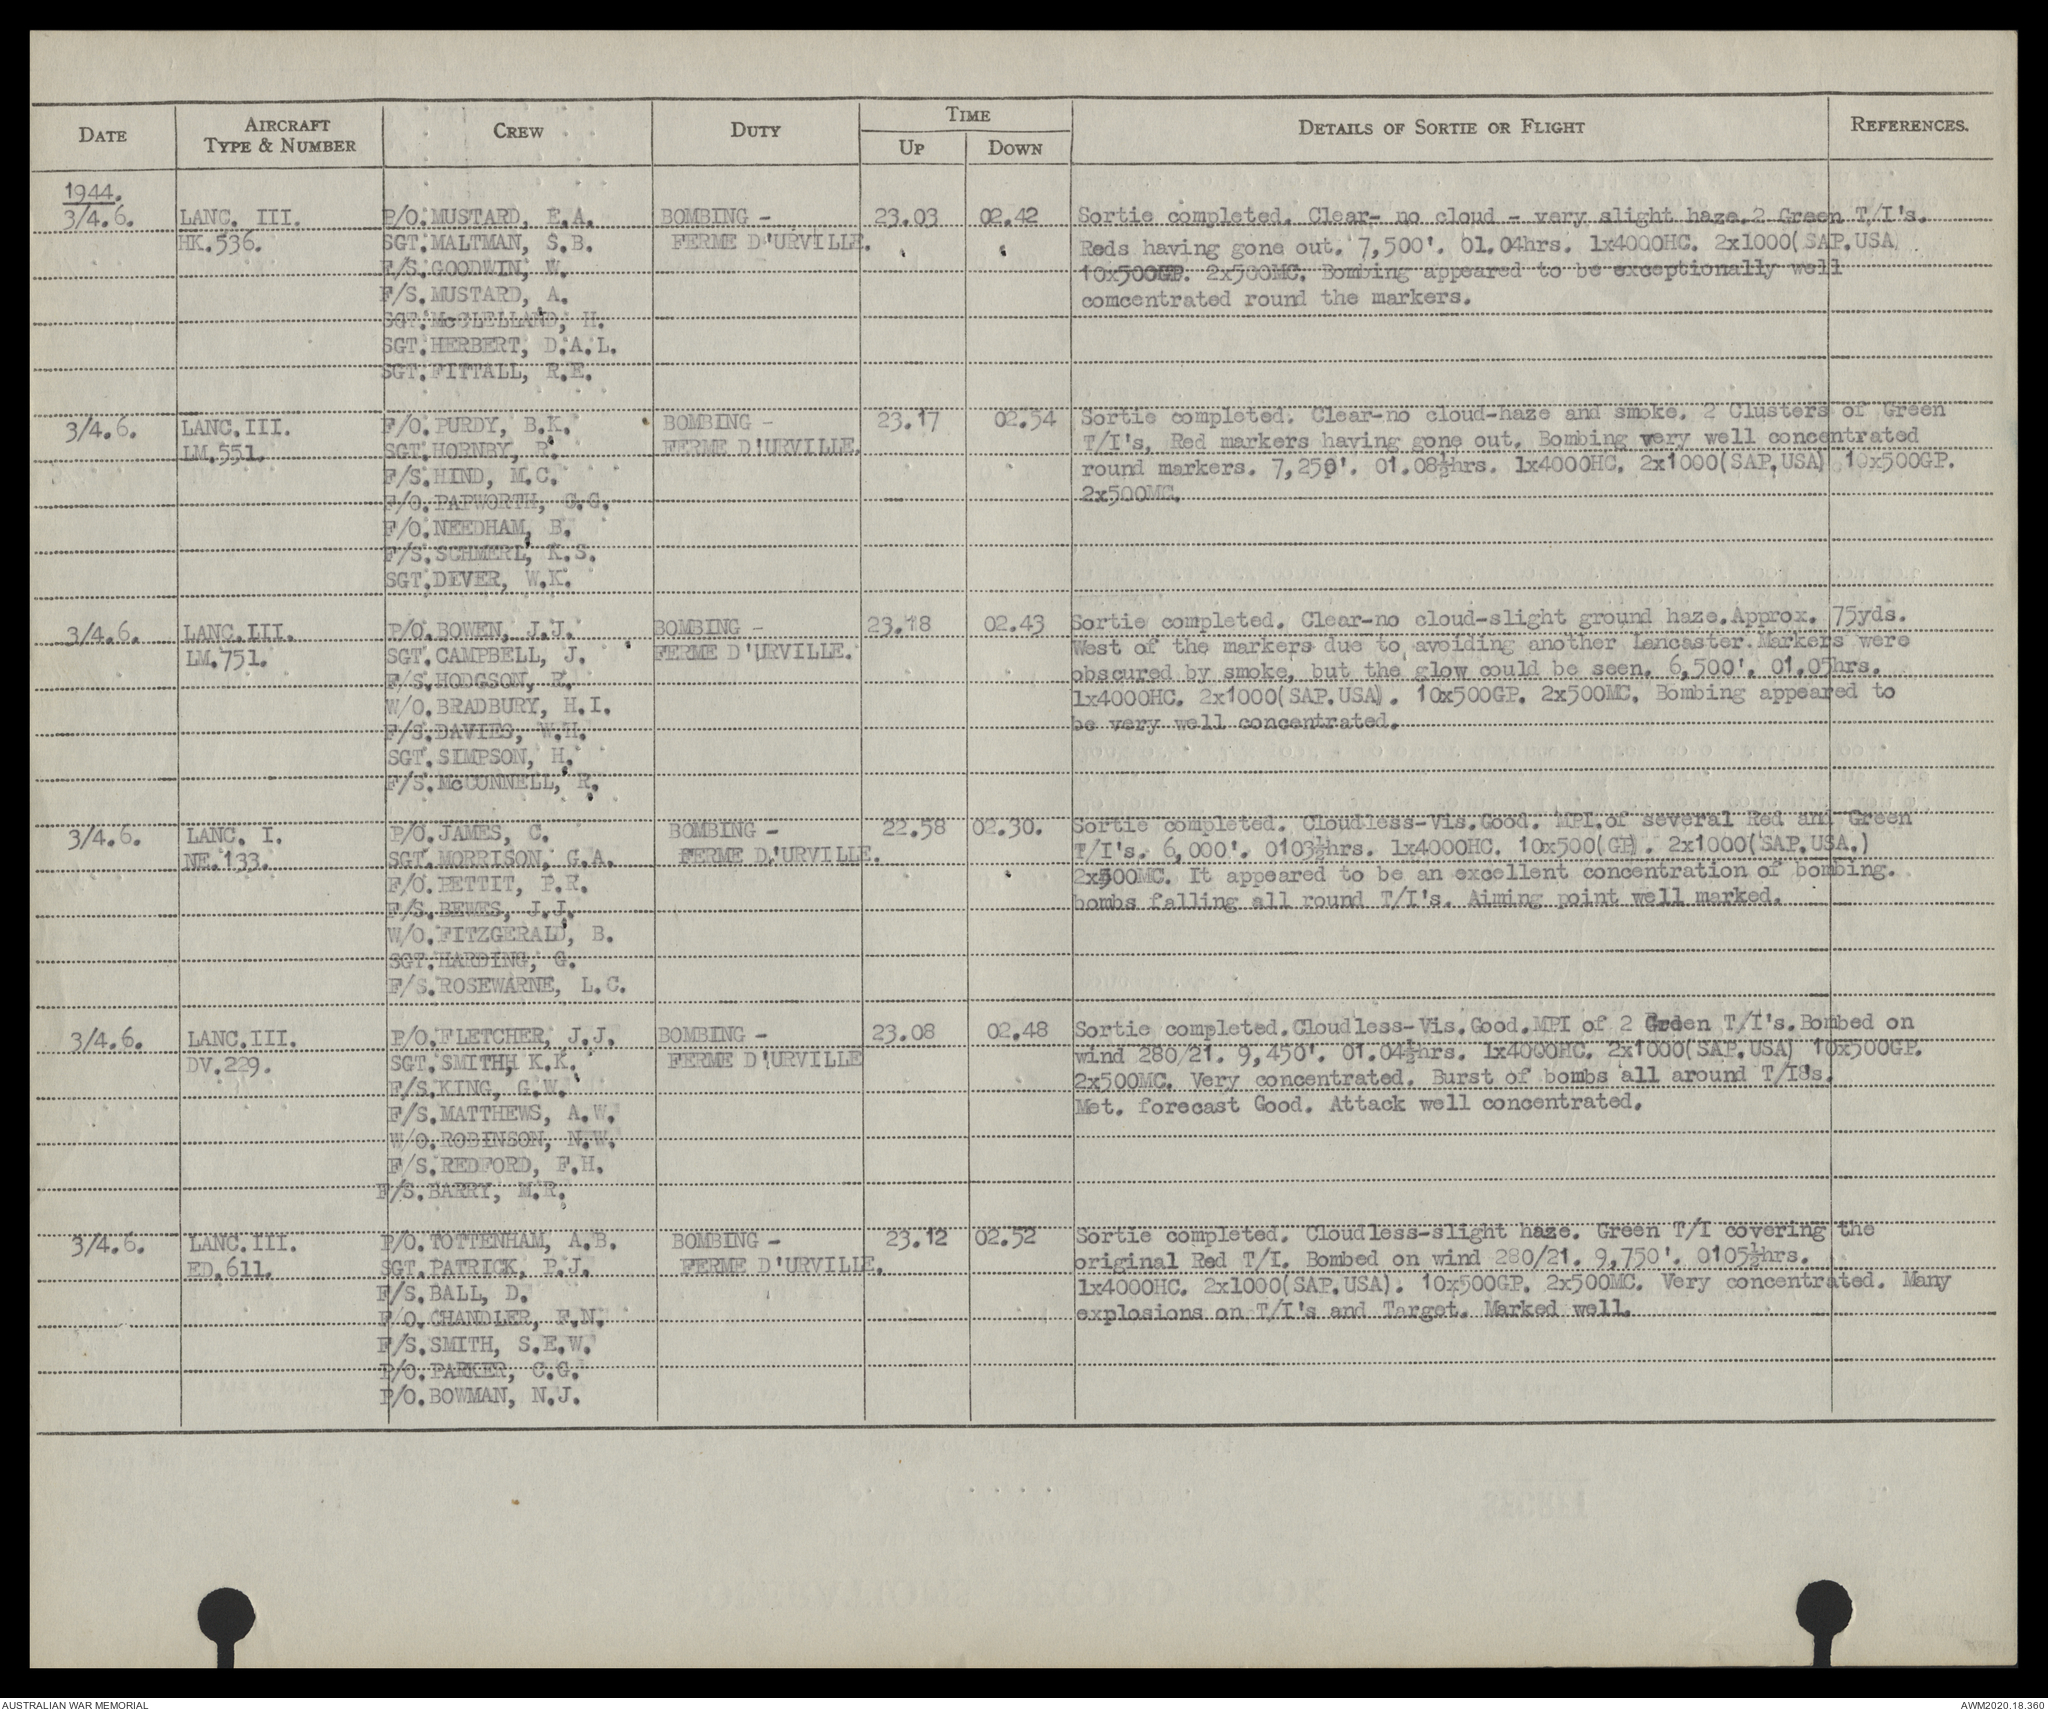 DATE AIRCRAFT TYPE & NUMBER CREW DUTY TIME UP DOWN DETAILS OF SORTIE OR FLIGHT REFERENCES.
1944.
3/4.6. LANC. III. P/O. MUSTARD, E.A. BOMBING - 23.03 02.42 Sortie completed. Clear- no cloud - very slight haze. 2 Green T/I's.
HK.536. SGT. MALTMAN, S.B. FERME D'URVILLE. Reds having gone out. 7,500'. 01.04hrs. 1x4000HC. 2x1000(SAP.USA)
F/S. GOODWIN, W. 10x500GP. 2x500MC. Bombing appeared to be exceptionally well
F/S. MUSTARD, A. comcentrated round the markers.
SGT. McCLELLAND, H.
SGT. HERBERT, D.A.L.
SGT. FITTALL, R.E.
3/4.6. LANC.III. F/O. PURDY, B.K. BOMBING - 23.17 02.54 Sortie completed. Clear-no cloud-haze and smoke. 2 Clusters of Green
LM.551. SGT. HORNBY, R. FERME D'URVILLE. T/I's, Red markers having gone out. Bombing very well concentrated
F/S. HIND, M.C. round markers. 7,250'. 01.08½hrs. 1x4000HC. 2x1000(SAP.USA) 10x500GP.
F/O. PAPWORTH, G.G. 2x500MC.
F/O. NEEDHAM, B.
F/S. SCHMERL, K.S.
SGT. DEVER, W.K.
3/4.6. LANC.III. P/O. BOWEN, J.J. BOMBING - 23.18 02.43 Sortie completed. Clear-no cloud-slight ground haze. Approx. 75yds.
LM.751. SGT. CAMPBELL, J. FERME D'URVILLE. West of the markers due to avoiding another Lancaster. Markers were
F/S. HODGSON, R. obscured by smoke, but the glow could be seen. 6,500'. 01.05hrs.
W/O. BRADBURY, H.I. 1x4000HC. 2x1000(SAP.USA). 10x500GP. 2x500MC. Bombing appeared to
F/S. DAVIES, W.H. be very well concentrated.
SGT. SIMPSON, H.
F/S. McCONNELL, R.
3/4.6. LANC. I. P/O. JAMES, C. BOMBING - 22.58 02.30. Sortie completed. Cloudless-Vis.Good. MPI.of several Red and Green
NE.133. SGT. MORRISON, G.A. FERME D'URVILLE. T/I's. 6,000'. 0103½hrs. 1x4000HC. 10x500(GP). 2x1000(SAP.USA.)
F/O. PETTIT, P.R. 2x500MC. It appeared to be an excellent concentration of bombing.
F/S. BEWES, J.J. bombs falling all round T/I's. Aiming point well marked.
W/O. FITZGERALD, B.
SGT. HARDING, G.
F/S. ROSEWARNE, L.C.
3/4.6. LANC.III. P/O. FLETCHER, J.J. BOMBING - 23.08 02.48 Sortie completed. Cloudless-Vis.Good. MPI of 2 Green T/I's. Bombed on
DV.229. SGT. SMITHH K.K. FERME D'URVILLE wind 280/21. 9,450'. 01.04½hrs. 1x4000HC. 2x1000(SAP.USA) 10x500GP.
F/S. KING, G.W. 2x500MC. Very concentrated. Burst of bombs all around T/I8s.
F/S. MATTHEWS, A.W. Met. forecast Good. Attack well concentrated.
W/O. ROBINSON, N.W.
F/S. REDFORD, F.H.
F/S. BARRY, M.R.
3/4.6. LANC.III. P/O. TOTTENHAM, A.B. BOMBING - 23.12 02.52 Sortie completed. Cloudless-slight haze. Green T/I covering the
ED.611. SGT. PATRICK, P.J. FERME D'URVILLE. original Red T/I. Bombed on wind 280/21. 9,750'. 0105½hrs.
F/S. BALL, D. 1x4000HC. 2x1000(SAP.USA). 10x500GP. 2x500MC. Very concentrated. Many
F/O. CHANDLER, F.N. explosions on T/I's and Target. Marked well.
F/S. SMITH, S.E.W.
P/O. PARKER, C.G.
P/O. BOWMAN, N.J.
AUSTRALIAN WAR MEMORIAL AWM2020.18.360